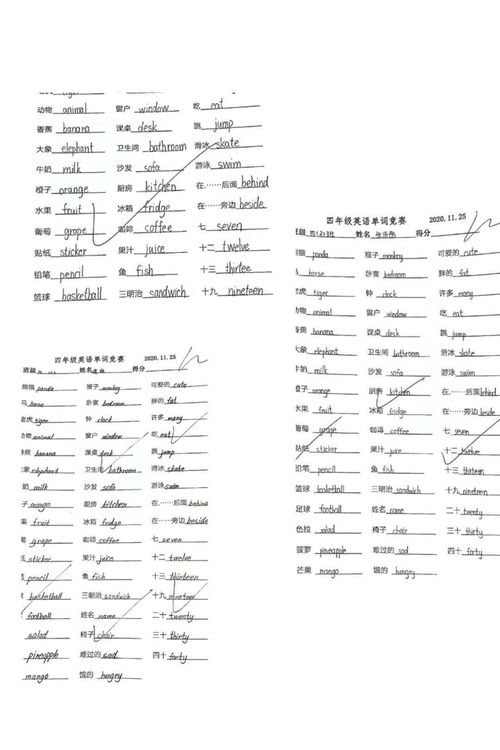 动物 animal 窗户 window 吃 eat
香蕉 banana 课桌 desk 跳 jump
大象 elephant 卫生间 bathroom 滑冰 skate
牛奶 milk 沙发 sofa 游泳 swim
橙子 orange 厨房 kitchen 在……后面 behind
水果 fruit 冰箱 fridge 在……旁边 beside
葡萄 grape 咖啡 coffee 七 seven
贴纸 sticker 果汁 juice 十二 twelve
铅笔 pencil 鱼 fish 十三 thirtee
篮球 basketball 三明治 sandwich 十九 nineteen
四年级英语单词竞赛 2020.11.25
班级 姓名 得分
熊猫 panda 猴子 monkey 可爱的 cute
马 horse 卧室 bedroom 胖的 fat
老虎 tiger 钟 clock 许多 many
动物 animal 窗户 window 吃 eat
香蕉 banana 课桌 desk 跳 jump
大象 elephant 卫生间 bathroom 滑冰 skate
奶 milk 沙发 sofa 游泳 swim
子 orange 厨房 kitchen 在……后面 behind
果 fruit 冰箱 fridge 在……旁边 beside
grape 咖啡 coffee 七 seven
sticker 果汁 juice 十二 twelve
pencil 鱼 fish 十三 thirteen
basketball 三明治 sandwich 十九 nineteen
football 姓名 name 二十 twenty
salad 椅子 chair 三十 thirty
pineapple 难过的 sad 四十 forty
mango 饿的 hungry
四年级英语单词竞赛 2020.11.25
班级 姓名 得分
熊猫 panda 猴子 monkey 可爱的 cute
马 horse 卧室 bedroom 胖的 fat
老虎 tiger 钟 clock 许多 many
动物 animal 窗户 window 吃 eat
香蕉 banana 课桌 desk 跳 jump
大象 elephant 卫生间 bathroom 滑冰 skate
牛奶 milk 沙发 sofa 游泳 swim
橙子 orange 厨房 kitchen 在……后面 behind
水果 fruit 冰箱 fridge 在……旁边 beside
葡萄 grape 咖啡 coffee 七 seven
贴纸 sticker 果汁 juice 十二 twelve
铅笔 pencil 鱼 fish 十三 thirteen
篮球 basketball 三明治 sandwich 十九 nineteen
足球 football 姓名 name 二十 twenty
色拉 salad 椅子 chair 三十 thirty
菠萝 pineapple 难过的 sad 四十 forty
芒果 mango 饿的 hungry